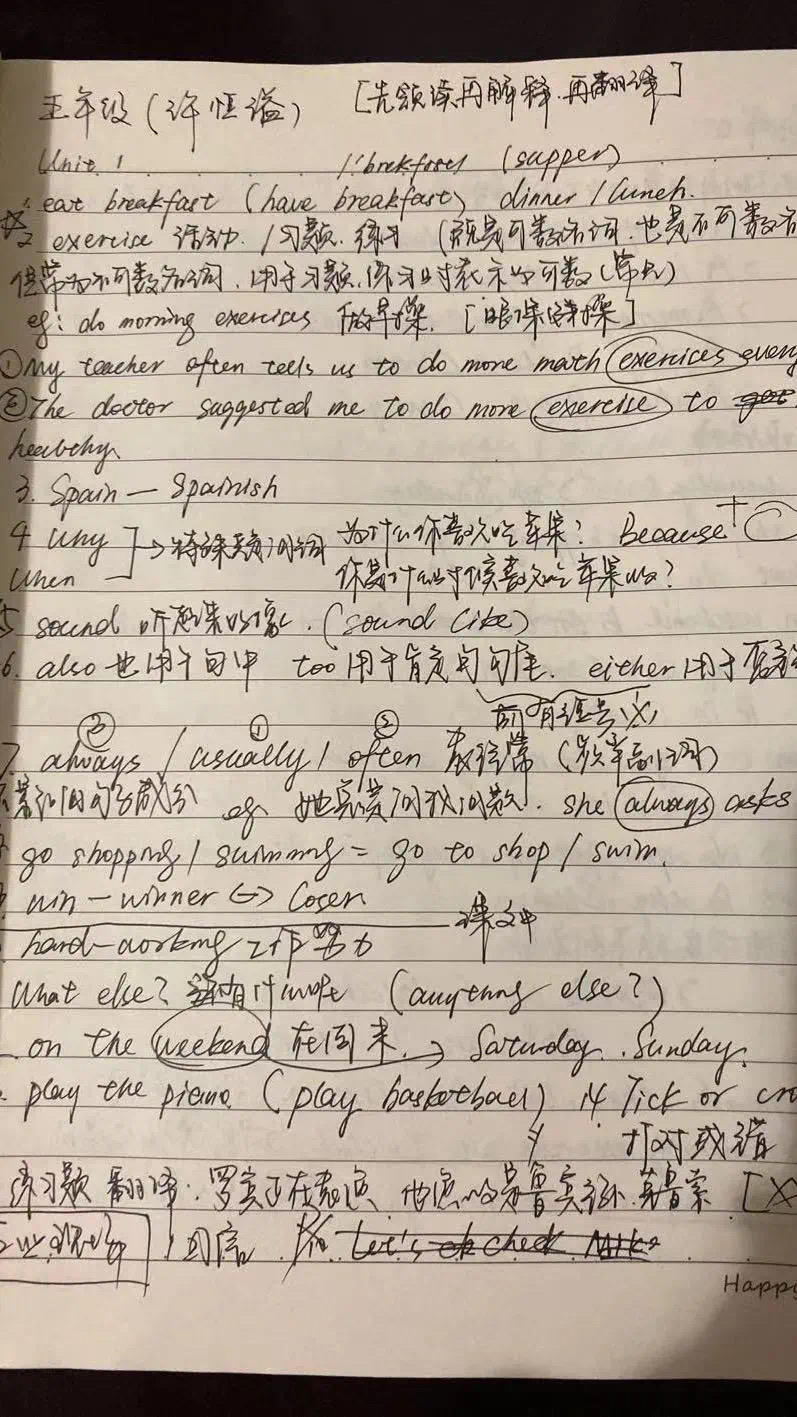 五年级(许恒溢) [先领读再解释.再翻译]
Unit 1 1:brekfast (supper)
1. eat breakfast (have breakfast) dinner / lunch.
2 exercise 活动 / 习题. 练习 (既是可数名词.也是不可数名
但常为不可数名词.用于习题,练习时表示为可数(常见)
eg: do morning exercises 做早操. [眼保健操]
①My teacher often tells us to do more math exercises every
②The doctor suggested me to do more exercise to get
healthy.
3. Spain — Spainish
4 Why 为什么你喜欢吃苹果? Because +
When → 特殊疑问词 你是什么时候喜欢吃苹果的?
5 sound 听起来 (sound like)
6. also 也用于句中 too 用于肯定句句尾. either 用于
前有逗号(,)
③ ① ②
7. always / usually / often 表经常 (频率副词)
eg. 她总爱问我问题. she always asks
go shopping / swimming = go to shop / swim.
win — winner ↔ loser
课文中
hard-working 工作努力
What else? 还有什么呢 (anything else?)
on the weekend 在周末. → Saturday. Sunday.
play the piano (play basketball) 14 Tick or cro
打对或错
练习题 翻译: 罗宾正在表演 他演的是鲁宾孙.
回信 Let's check Mike
Happy